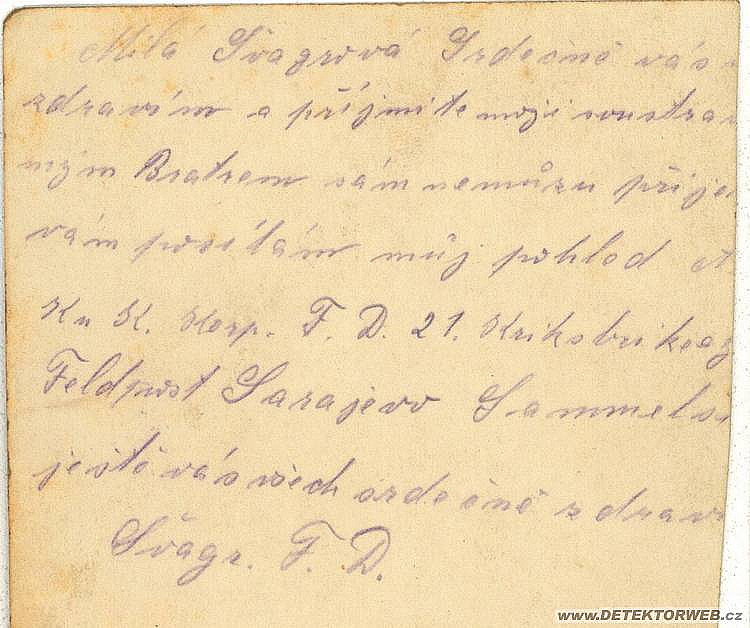 Milá Švagrová Srdečně vás
zdravím a příjmite moji soustra
mým Bratrem sám nemůzu přije
vám posílám můj pohled
Ku K. Korp. F. D. 21.
Feldpost Sarajevo Sammels
ještě vás všech srdečně zdrav
Švagr. F. D.
www.DETEKTORWEB.cz